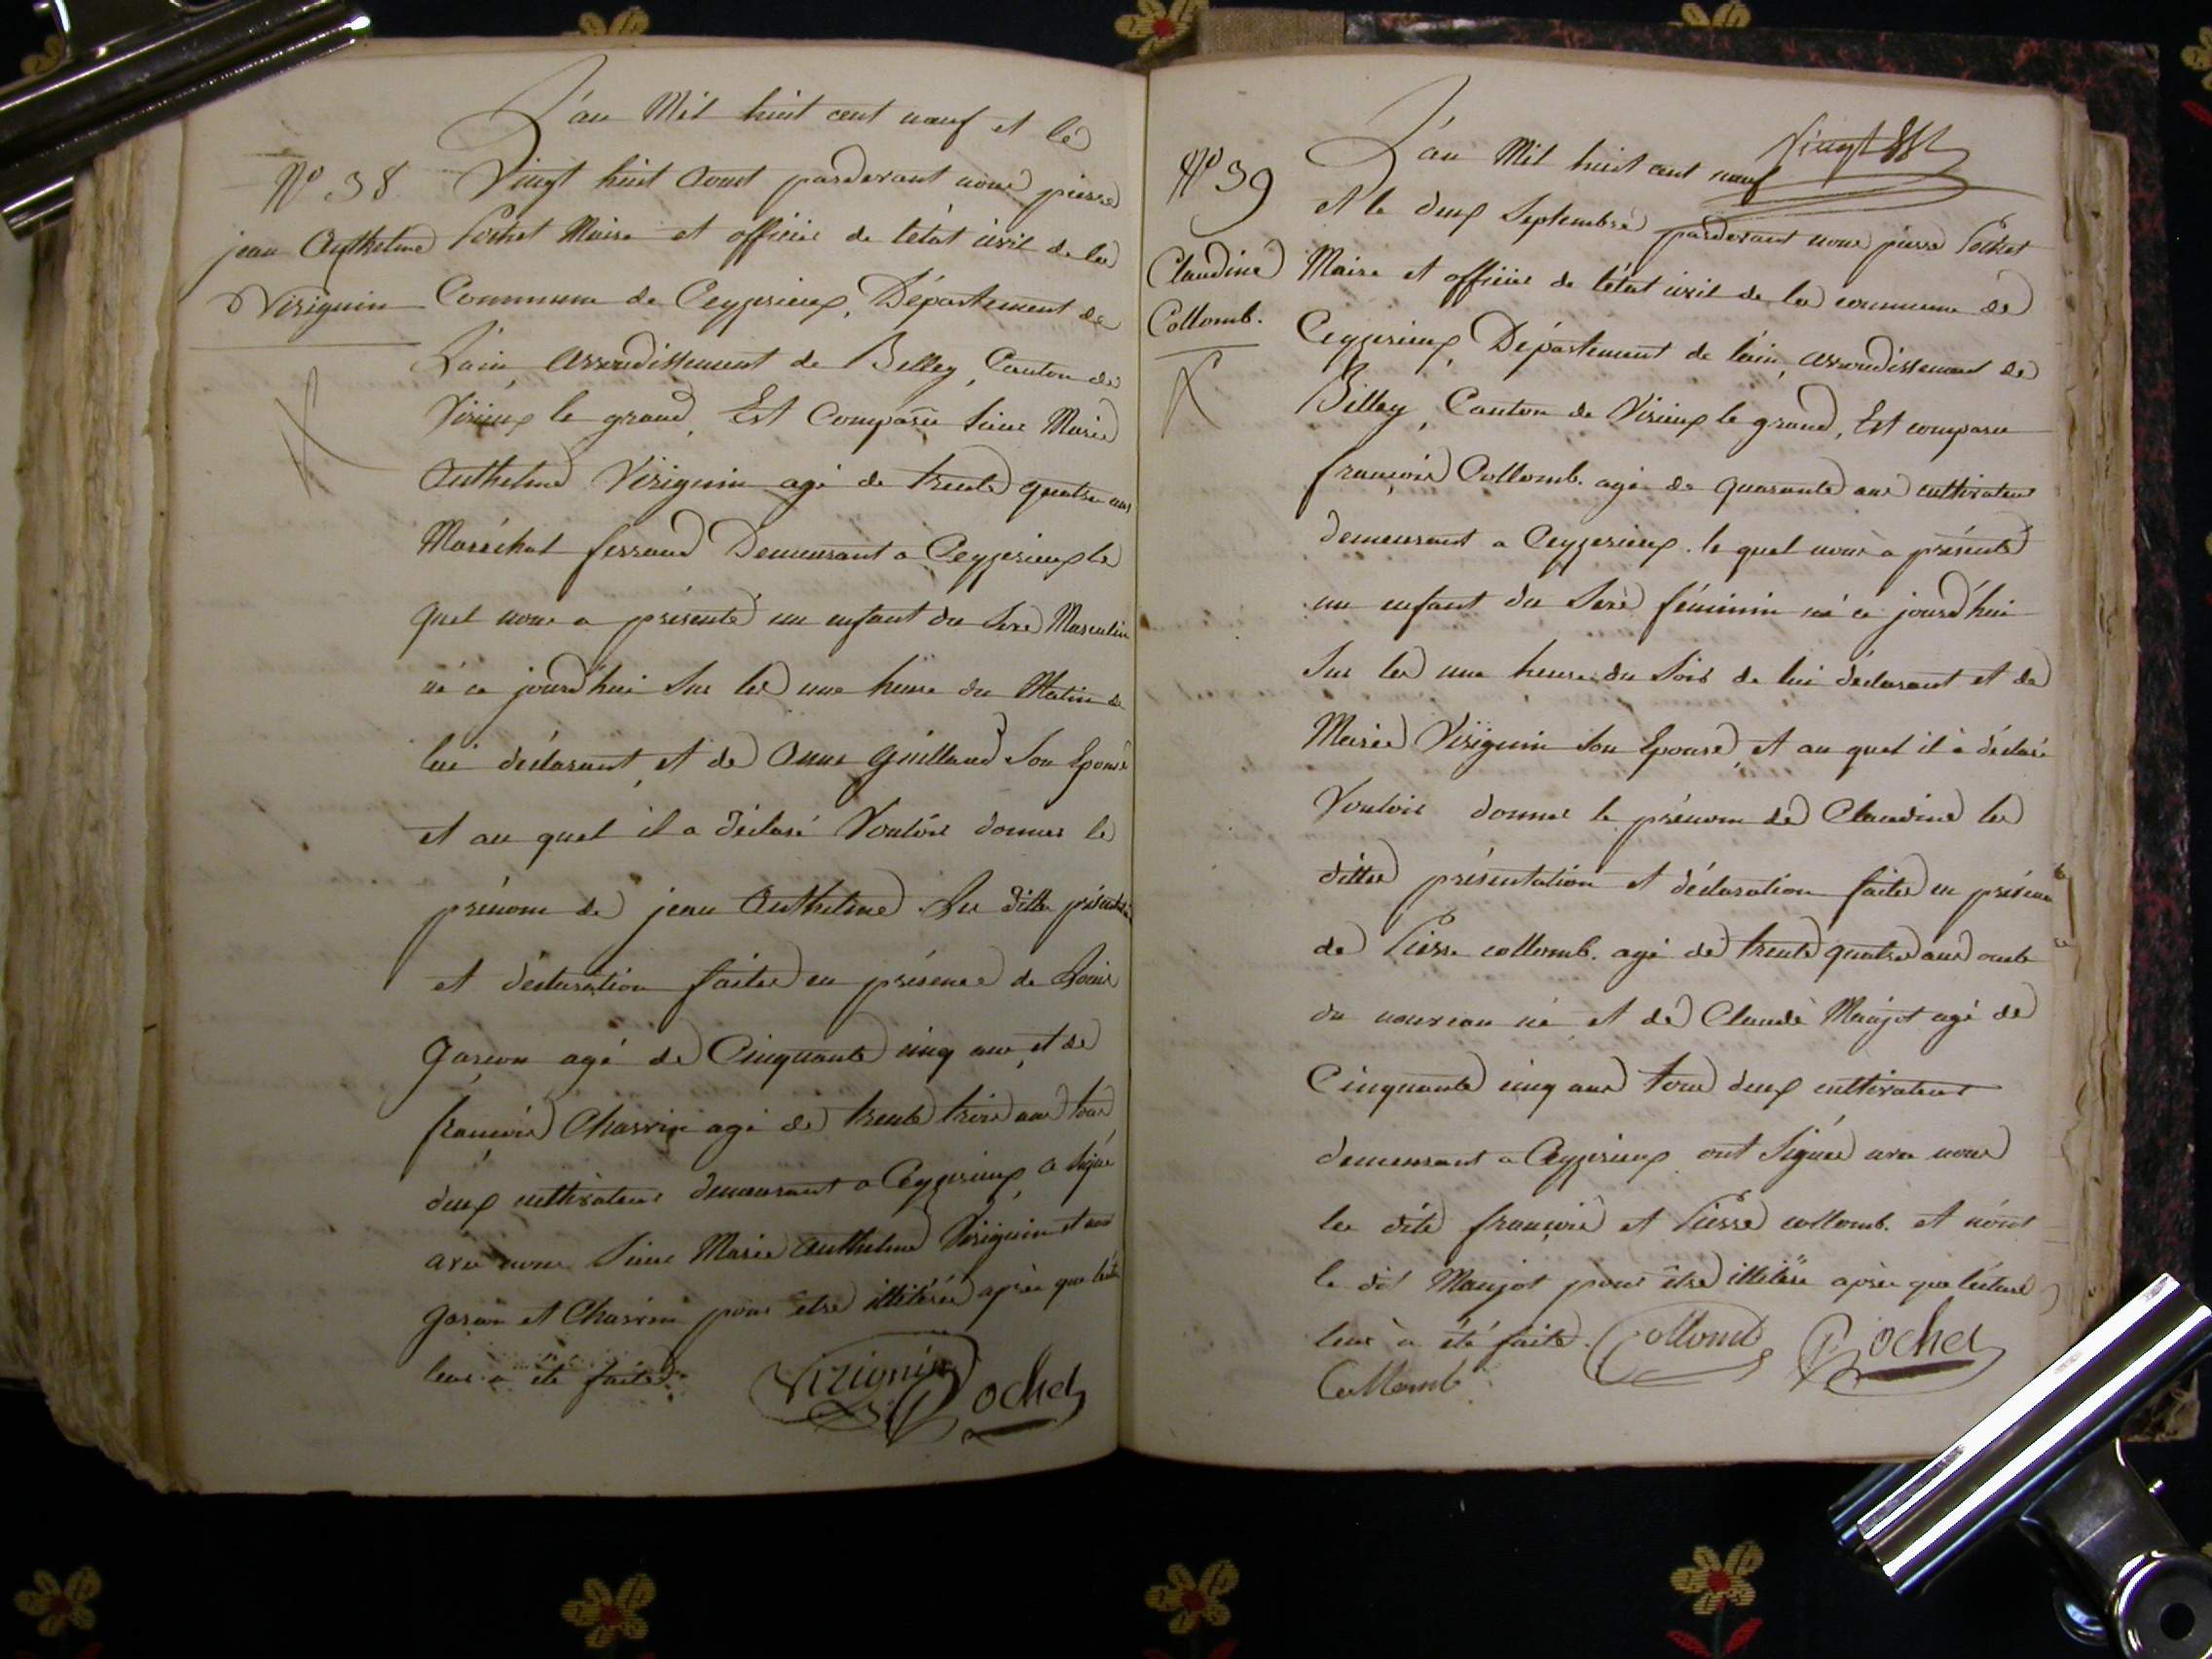 L'an Mil huit cent neuf et le
N° 38 Vingt huit Aoust pardevant nous pierre
jean Anthelme Pochet Maire et officier de l'état civil de la
Viriguin Commune de Ceyzerieux, Département de
L'ain Arrondissement de Belley, Canton de
Virieux le grand, Est Comparu Sieur Marie
Anthelme Viriguin agé de trente quatre ans
Maréchal ferrand Demeurant a Ceyzerieux le
quel nous a présenté un enfant du Sexe Masculin
né ce jourd'hui Sur les une heure du Matin de
lui déclarant, et de Anne Guilland Son Epouse
et au quel il a déclaré Vouloir donner le
prénom de jean Anthelme. La ditte
et déclaration faites en présence de Louis
garcon agé de Cinquante cinq ans, et de
françois Charvin agé de trente trois ans tous
deux cultivateurs demeurant a Ceyzerieux, a Signé
avec nous Sieur Marie Anthelme Viriguin et non
garcon et Charvin pour être illitérés après que
leur a été faite.
Viriguin Pochet
L'an Mil huit cent neuf Vingt
N° 39 et le deux Septembre pardevant nous pierre Pochet
Claudine Maire et officier de l'état civil de la commune de
Collomb. Ceyzerieux, Département de l'ain, arrondissement de
Belley, Canton de Virieux le grand, Est comparu
françois Collomb. agé de quarante ans cultivateur
demeurant a Ceyzerieux. le quel nous a présenté
un enfant du Sexe féminin né ce jourd'hui
Sur les une heure du Soir de lui déclarant et de
Marie Viriguin Son Epouse, et au quel il à déclaré
Vouloir donner le prénom de Claudine les
dittes présentation et déclaration faites en présence
de Pierre collomb. agé de trente quatre ans oncle
du nouveau né et de Claude Maujot agé de
Cinquante cinq ans tous deux cultivateurs
demeurant a Ceyzerieux ont Signés avec nous
les dits françois et Pierre collomb. et non
le dit Maujot pour être illitéré après que lecture
leur à été faite. Collomb Pochet
Collomb